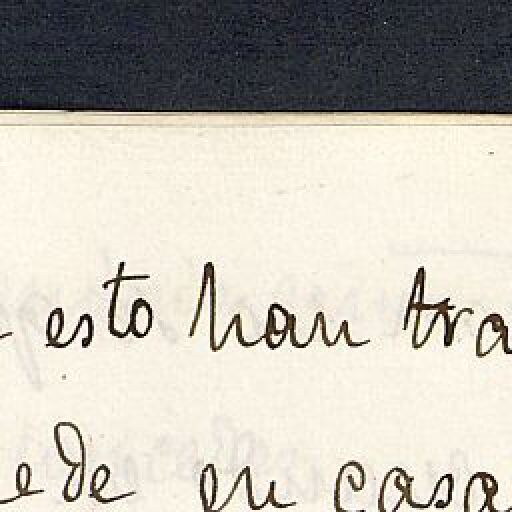 esto han tra
ede en casa